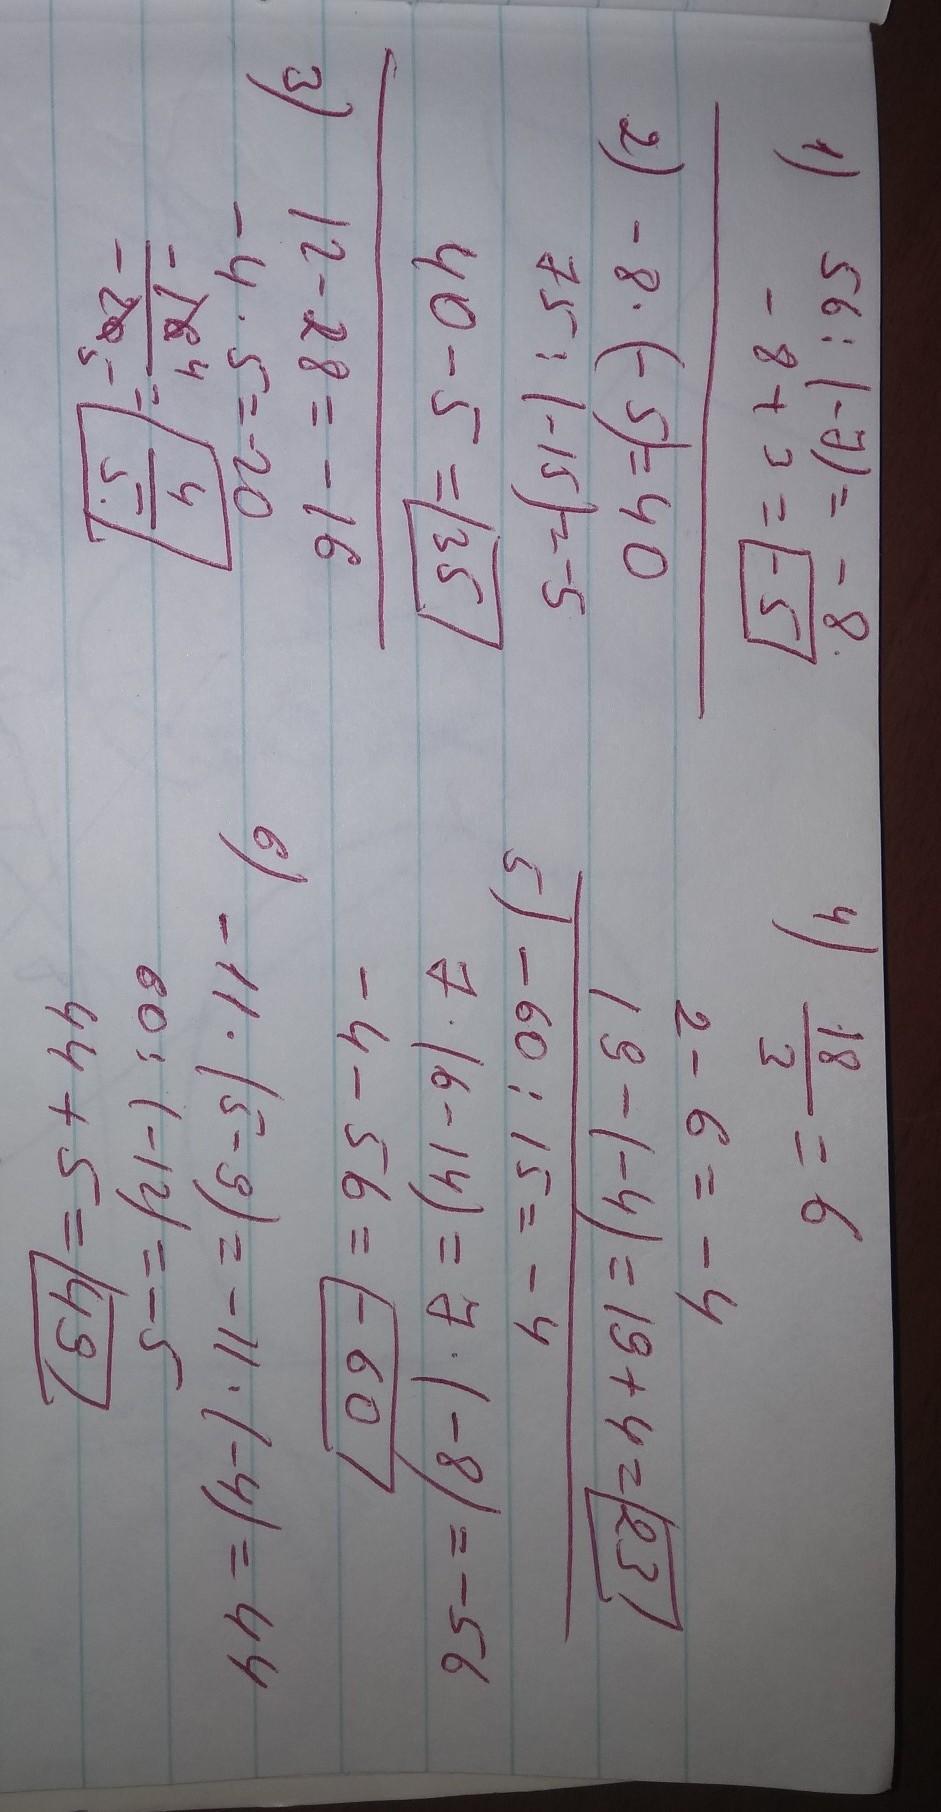 1) 56 : (-7) = -8.
-8 + 3 = -5
2) -8 · (-5) = 40
75 : (-15) = -5
40 - 5 = 35
3) 12 - 28 = -16
-4 · 5 = -20
-16 4 / -20 5 = 4/5.
4) 18/3 = 6
2 - 6 = -4
19 - (-4) = 19 + 4 = 23
5) -60 : 15 = -4
7 · (6 - 14) = 7 · (-8) = -56
-4 - 56 = -60
6) -11 · (5 - 9) = -11 · (-4) = 44
60 : (-12) = -5
44 + 5 = 49